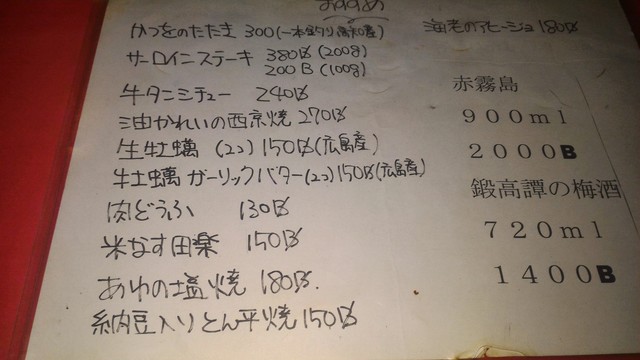 おすすめ
かつをのたたき 300(一本釣り高知産)
サーロインステーキ 380B (200g)
200B (100g)
牛タンシチュー 240B
油かれいの西京焼 270B
生牡蠣 (2コ) 150B(広島産)
牡蠣ガーリックバター(2コ)150B(広島産)
肉どうふ 130B
米なす田楽 150B
あゆの塩焼 180B.
納豆入りとん平焼 150B
海老のアヒージョ 180B
赤霧島
900ml
2000B
鍛高譚の梅酒
720ml
1400B